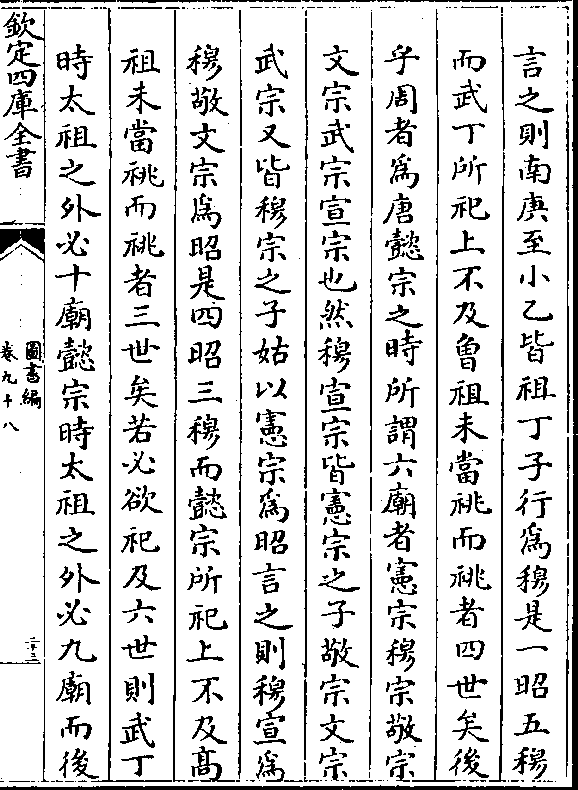 言之則南庚至小乙皆祖丁子行爲穆是一昭五穆
而武丁所祀上不及曾祖未當祧而祧者四世矣後
乎周者爲唐懿宗之時所謂六廟者憲宗穆宗敬宗
文宗武宗宣宗也然穆宣宗皆憲宗之子敬宗文宗
武宗又皆穆宗之子姑以憲宗爲昭言之則穆宣爲
穆敬文宗爲昭是四昭三穆而懿宗所祀上不及髙
祖未當祧而祧者三世矣若必欲祀及六世則武丁
時太祖之外必十廟懿宗時太祖之外必九廟而後
欽定四庫全書
圖書編
卷九十八